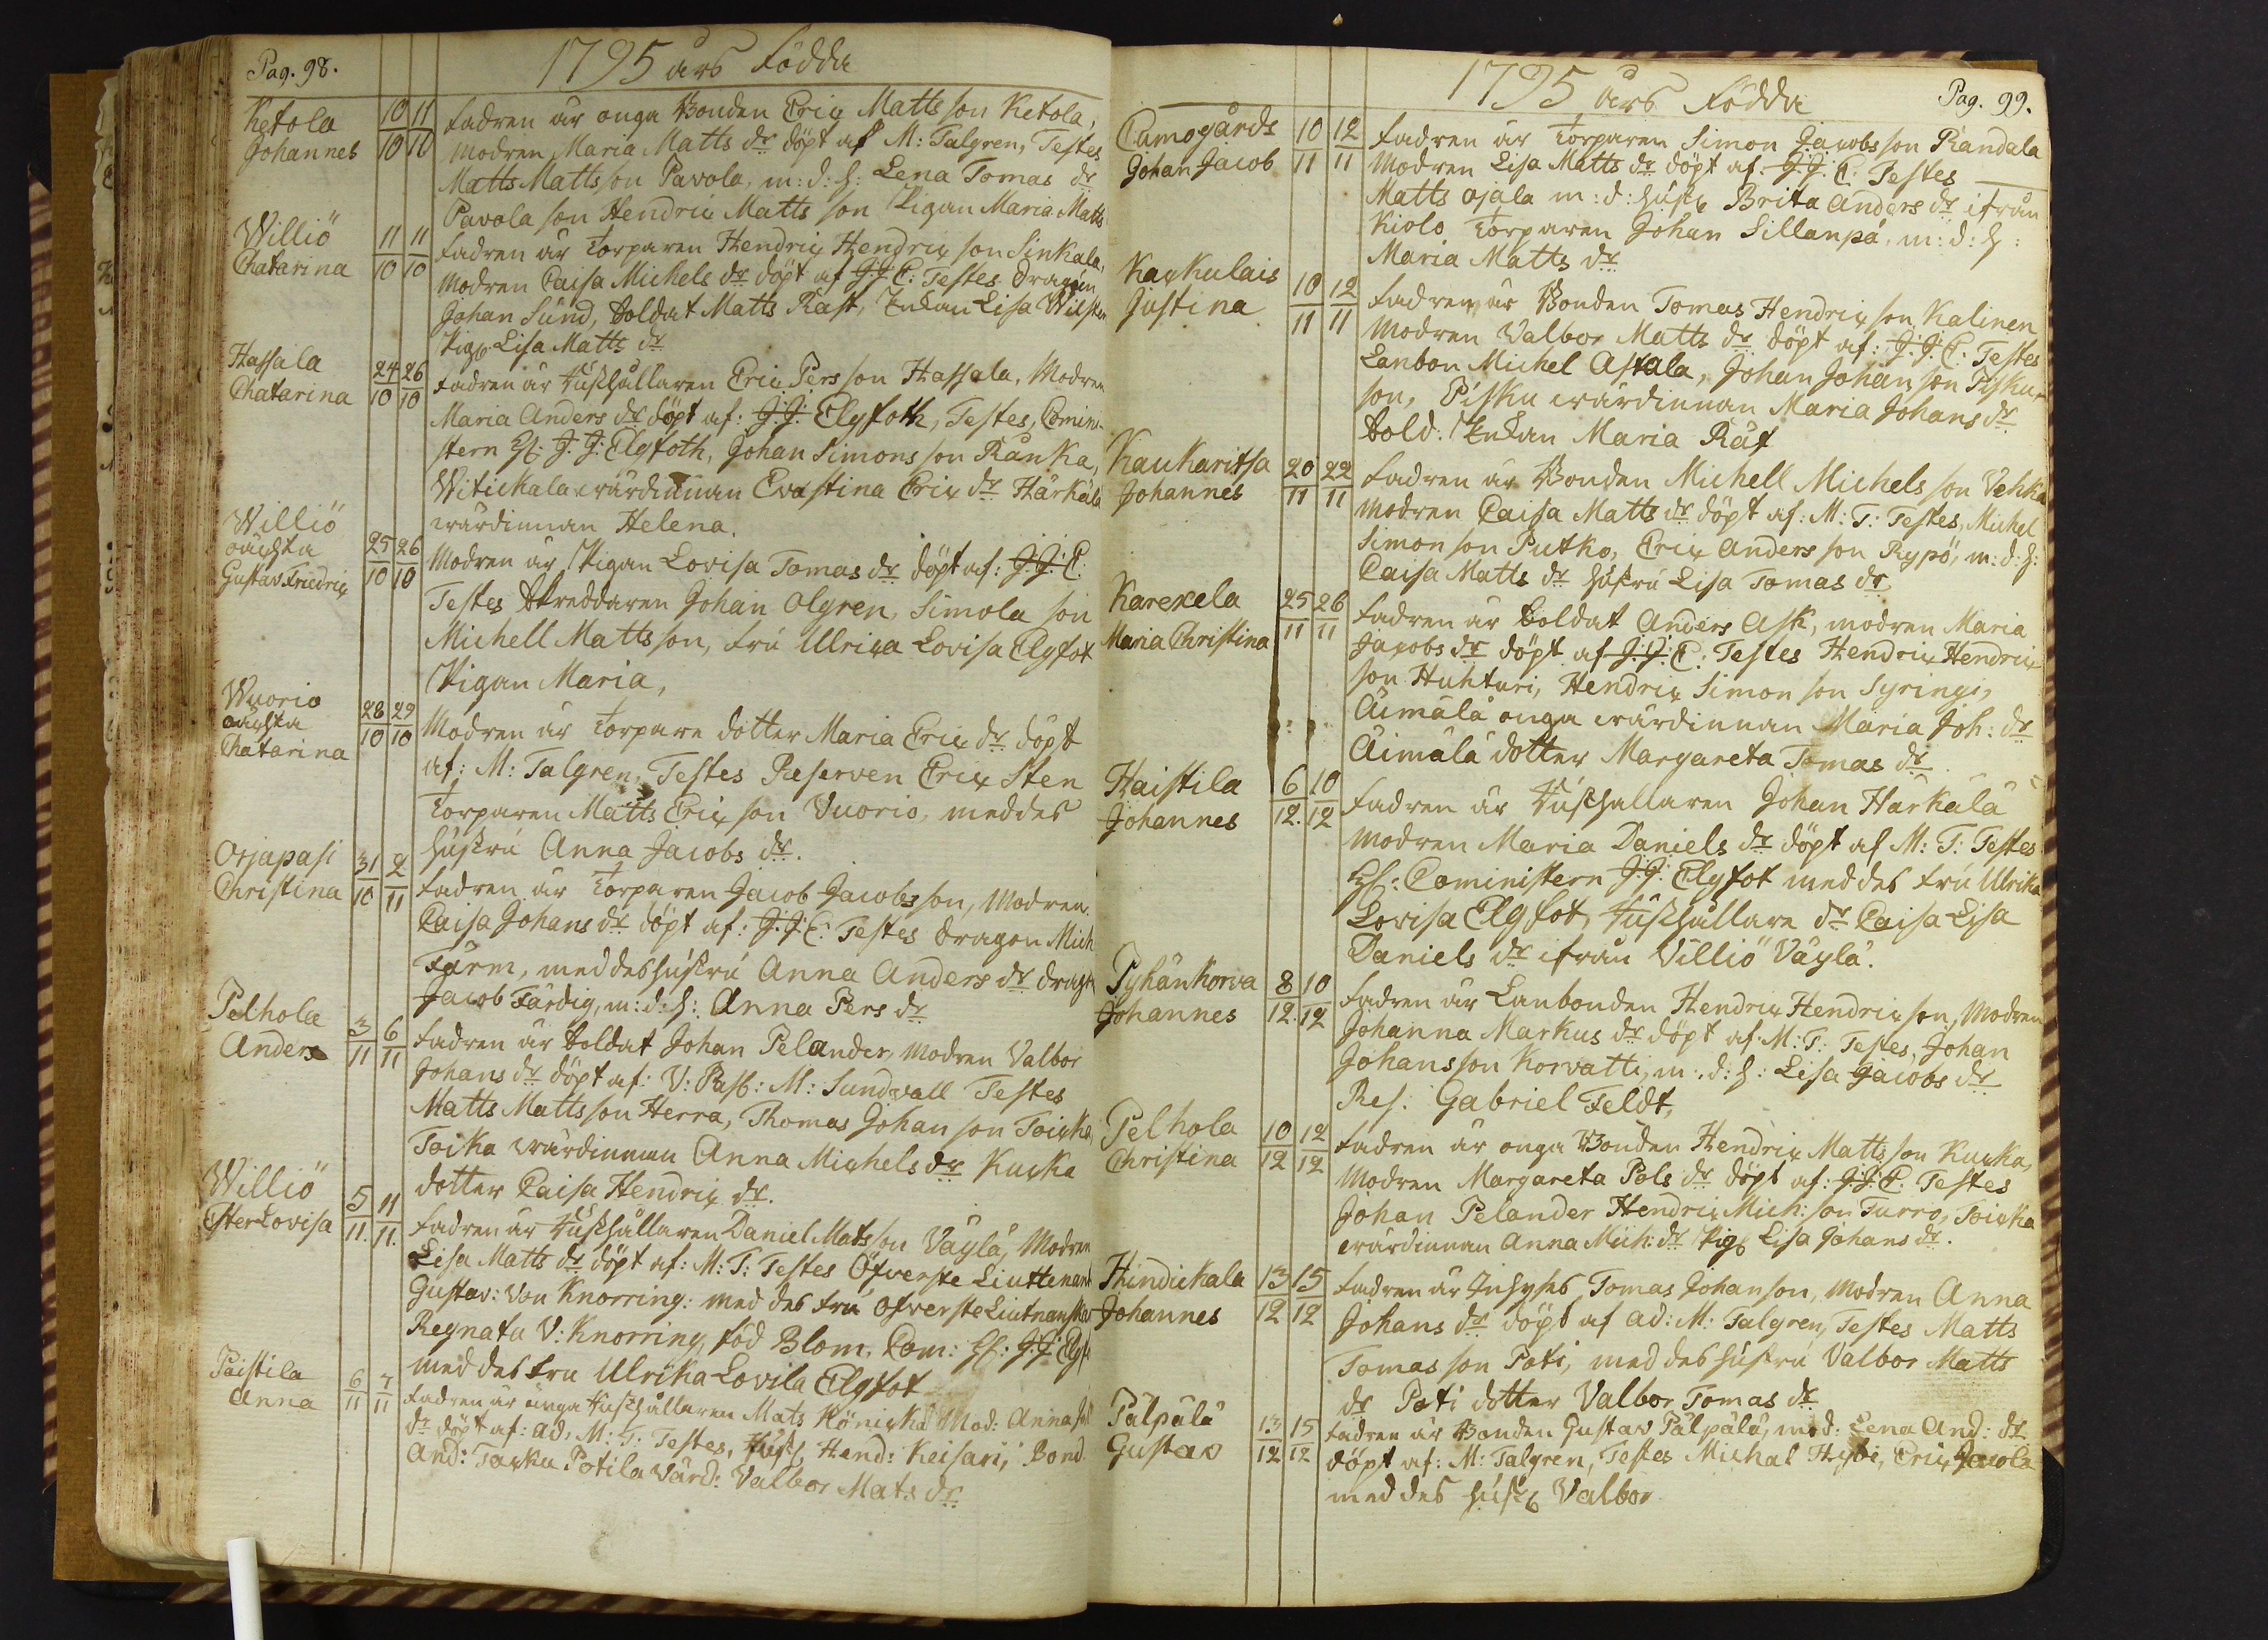 Pag. 98.
1795 års Födda
Ketola 10/10 11/10 fadren är unga Bonden Eric Matts son Ketola,
Johannes modren Maria Matts dr döpt af M: Talgren, Testes
Matts Matts son Pavola, m: d: h: Lena Tomas dr
Pavola son Hendric Matts son Pigan Maria Matts
Williö 11/10 11/10 fadren är Torparen Hendric Hendric son Sinkala,
Chatarina modren Caisa Michels dr döpt af J: J: E: Testes Dragon
Johan Sund, Soldat Matts Rast, Enkan Lisa
Pig: Lisa Matts dr
Hassala 24/10 26/10 fadren är Hushållaren Eric Pers son Hassala, Modren
Chatarina Maria Anders dr döpt af: J: J: Elgfoth, Testes, Comini-
stern H: J: J: Elgfoth, Johan Simons son Ranka,
Witickala wärdinnan Evastina Eric dr Härkälä
wärdinnan Helena.
Williö
oächta 25/10 26/10 Modren är Pigan Lovisa Tomas dr döpt af: J: J: E:
Gustav Friedric Testes Skreddaren Johan Olgren, Simola son
Michell Matts son, fru Ulrica Lovisa Elgfot
Pigan Maria,
Wuorio
oächta 28/10 29/10 Modren är Torpare dotter Maria Eric dr döpt
Chatarina af: M: Talgren, Testes Reserven Eric Sten
Torparen Matts Eric son Vuorio, med des
hustru Anna Jacobs dr.
Orjapasi 31/10 2/11 fadren är Torparen Jacob Jacobs son, Modren
Christina Caisa Johans dr döpt af: J: J: E: Testes Dragon Mich
Färm, med des hustru Anna Anders dr Drag:
Jacob Färdig, m: d: h: Anna Pers dr
Pelhola 3/11 6/11 fadren är Soldat Johan Pelander, Modren Valbor
Anders Johans dr döpt af: V: Past: M: Sundvall Testes
Matts Matts son Herra, Thomas Johan son Toicka
Toika wärdinnan Anna Michels dr Kucka
dotter Caisa Hendric dr.
Williö 5/11. 11/11. fadren är Hushållaren Daniel Mats son Väylä, Modren
Ester Lovisa Lisa Matts dr döpt af: M: T: Testes Öfverste Liuttenant
Gustav: Von Knorring: med des fru Öfverste Liutnanskan
Regnata V: Knorring, föd Blom, Com: H: J: J: Elgf:
med des fru Ulrika Lovisa Elgfot
Paistila 6/11 7/11 fadren är unga Hushållaren Mats Könicka Mod: Anna
Anna dr döpt af: ad. M: T: Testes, Hush: Hend: Keisari, Bond
And: Tacku Potila Wärd: Valbor Mats dr
1795 års Födda
Pag. 99.
Cumogårds 10/11 12/11 fadren är Torparen Simon Jacobs son Randala
Johan Jacob Modren Lisa Matts dr döpt af: J: J: E: Testes
Matts Ojala m: d: hustr: Brita Anders dr ifrån
Kiolo Torparen Johan Sillanpä, m: d: h:
Maria Matts dr
Kaukulais 10/11 12/11 fadren är Bonden Tomas Hendric son Kalinen
Justina Modren Valbor Matts dr döpt af: J: J: E: Testes
Lanbon Michel Astala, Johan Johan son Pisku
son, Pisku wärdinnan Maria Johans dr
Sold: Enkan Maria Räf
Kaukaritsa 20/11 22/11 fadren är Bonden Michell Michels son Vehka
Johannes Modren Caisa Matts dr döpt af: M: T: Testes, Michel
Simon son Putko, Eric Anders son Rypö, m: d: h:
Caisa Matts dr hustru Lisa Tomas dr
Karekela 25/11 26/11 fadren är Soldat Anders Ask, modren Maria
Maria Christina Jacobs dr döpt af J: J: E: Testes Hendric Hendric
son Huhturi, Hendric Simon son Syringi,
Äimälä unga wärdinnan Maria Joh: dr
Äimälä dotter Margareta Tomas dr
Haistila 6/12. 10/12 fadren är Hushållaren Johan Härkälä
Johannes modren Maria Daniels dr döpt af M: T: Testes
H: Cominstern J: J: Elgfot med des fru Ulrika
Lovisa Elgfot, Hushållare dr Caisa Lisa
Daniels dr ifrån Villiö Väylä.
Pyhänkorva 8/12. 10/12 fadren är Lanbonden Hendric Hendric son, Modren
Johannes Johanna Markus dr döpt af: M: T: Testes, Johan
Johans son Korvatti, m: d: h: Lisa Jacobs dr
Res: Gabriel Feldt,
Pelhola 10/12 12/12 fadren är unga Bonden Hendric Matts son Kucka,
Christina Modren Margareta Pols dr döpt af: J: J: E: Testes
Johan Pelander Hendric Mich: son Turro, Toicka
wärdinnan Anna Mich: dr Pig: Lisa Johans dr.
Hindickala 13/12 15/12 fadren är Inhyses Tomas Johan son, Modren Anna
Johannes Johans dr döpt af ad: M: Talgren, Testes Matts
Tomas son Poti, med des hustru Valbor Matts
dr Poti dotter Valbor Tomas dr
Pälpälä 13/12 15/12 fadren är Bonden Gustav Pälpälä, mod: Lena And: dr
Gustav döpt af: M: Talgren, Testes Michal Hysi, Eric
med des hustr: Valbor